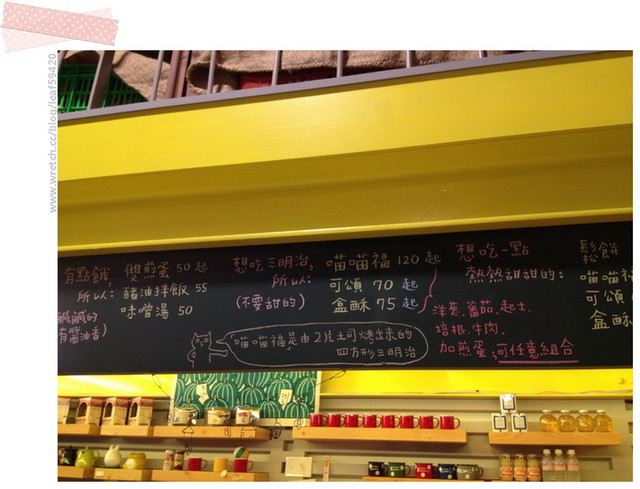 www.wretch.cc/blog/leaf59420
有點餓,
所以:
鹹鹹的
有醬油香)
雙煎蛋 50 起
豬油拌飯 55
味噌湯 50
想吃三明治,
所以:
(不要甜的)
喵喵福 120 起
可頌 70 起
盒酥 75 起
洋蔥.蕃茄.起士.
培根.牛肉.
加煎蛋,可任意組合
喵喵福是由2片土司烤出來的
四方形三明治
想吃一點
熱熱甜甜的:
鬆餅
喵喵福
可頌
盒酥